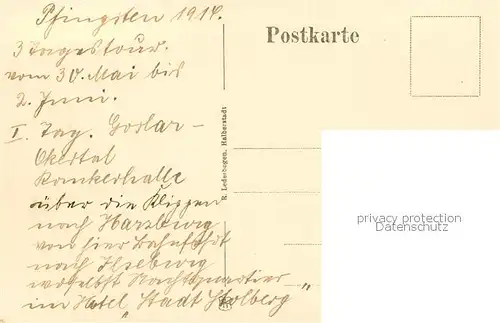 Pfingsten 1914.
3 Tagestour.
vom 30. Mai bis
2. Juni.
I. Tag. Goslar –
Okertal
Romkerhalle
über die Klippen
nach Harzburg
von hier Bahnfahrt
nach Ilseburg
woselbst Nachtquartier
im Hotel „Stadt Stolberg"
Postkarte
R. Lederbogen, Halberstadt
privacy protection
Datenschutz